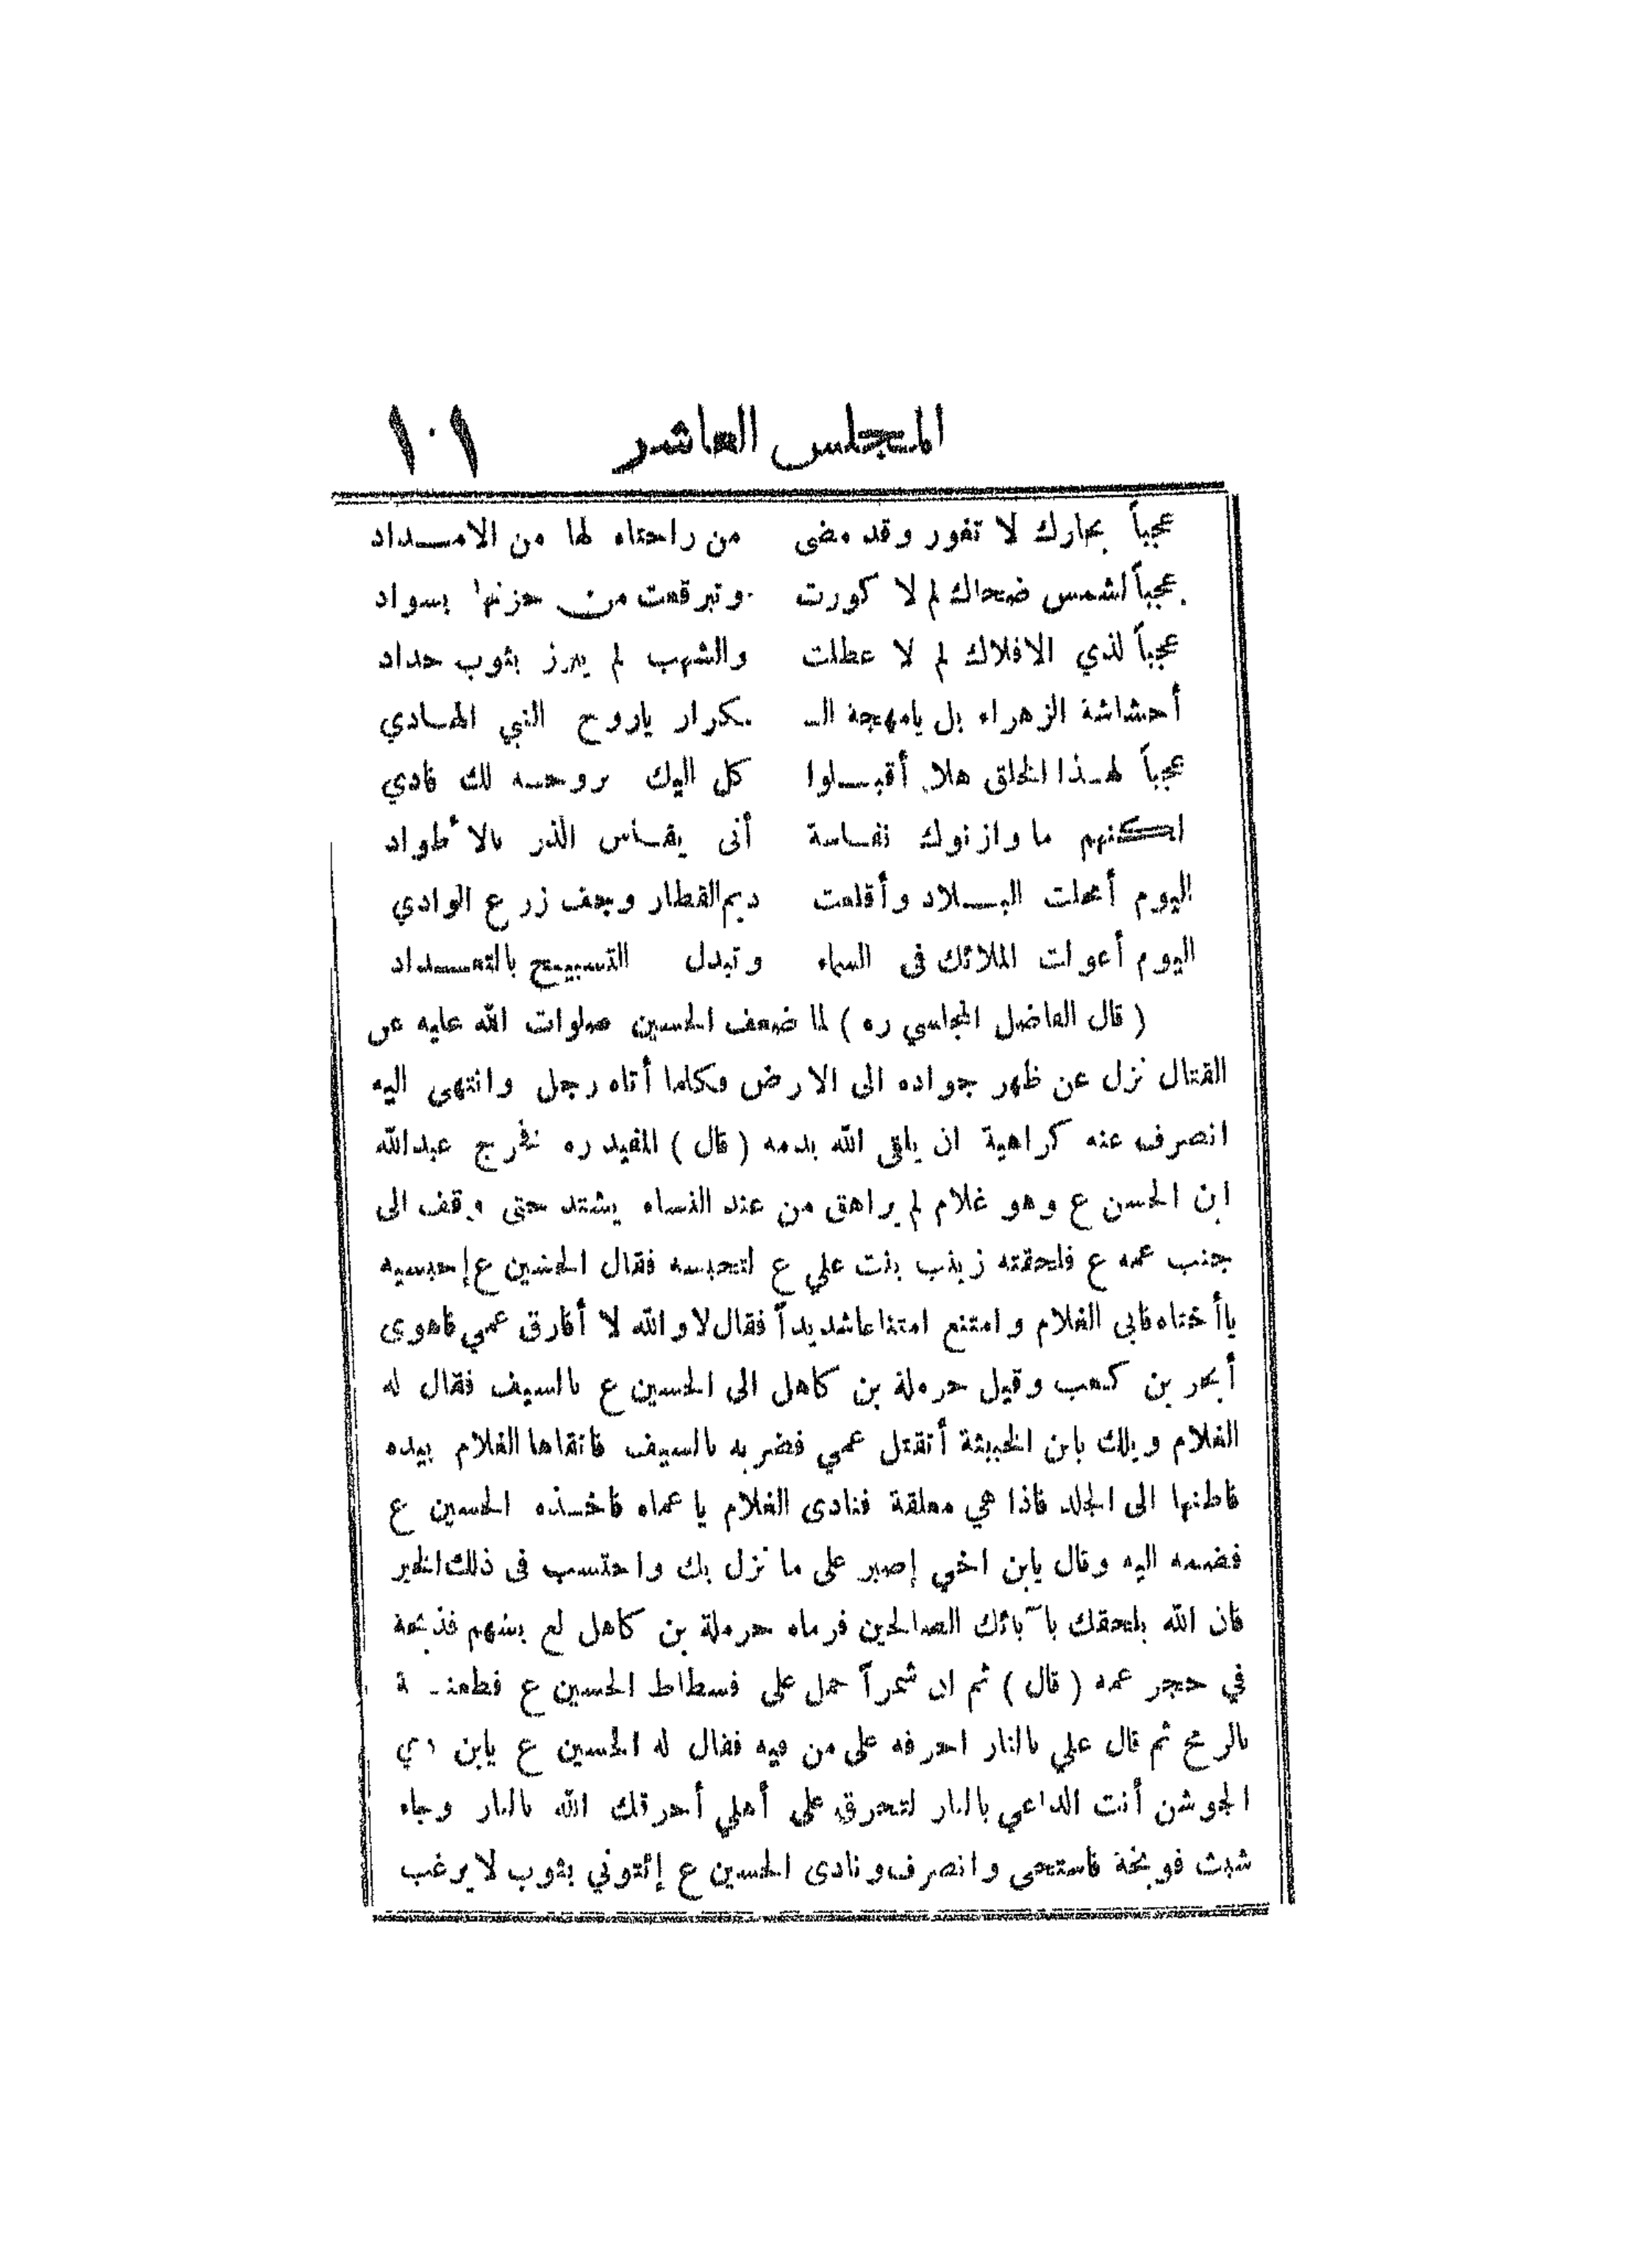 المجلس العاشر ١٠١
عجباً بحارك لا تغور وقد مضى من راحتاه لها من الامـــداد
عجباً لشمس ضحاك لم لا كورت وتبرقعت من حزنها بسواد
عجباً لذي الافلاك لم لا عطلت والشهب لم يبرز بثوب حداد
أحشاشة الزهراء بل يامهجة الـ ـكرار ياروح النبي الهـادي
عجباً لهـذا الخلق هلا أقبـلوا كل اليك بروحـه لك فادي
لكنهم ما وازنوك نفـاسة أنى يقـاس الذر بالأطواد
اليوم أمحلت البـلاد وأقلعت ديم القطار وجف زرع الوادي
اليوم أعولت الملائك في السماء وتبدل التسبيح بالتعـداد
( قال الفاضل المجلسي ره ) لما ضعف الحسين صلوات الله عليه عن
القتال نزل عن ظهر جواده الى الارض وكلما أتاه رجل وانتهى اليه
انصرف عنه كراهية ان يلقى الله بدمه ( قال ) المفيد ره فخرج عبدالله
ابن الحسن ع وهو غلام لم يراهق من عند النساء يشتد حتى وقف الى
جنب عمه ع فلحقته زينب بنت علي ع لتحبسه فقال الحسين ع إحبسيه
ياأختاه فابى الغلام وامتنع امتناعاشديداً فقال لا والله لا أفارق عمي فاهوى
أبحر بن كعب وقيل حرملة بن كاهل الى الحسين ع بالسيف فقال له
الغلام ويلك يابن الخبيثة أتقتل عمي فضربه بالسيف فاتقاها الغلام بيده
فاطنها الى الجلد فاذا هي معلقة فنادى الغلام يا عماه فاخـذه الحسين ع
فضمه اليه وقال يابن اخي إصبر على ما نزل بك واحتسب في ذلك الخير
فان الله يلحقك بآبائك الصالحين فرماه حرملة بن كاهل لع بسهم فذبحه
في حجر عمه ( قال ) ثم ان شمراً حمل على فسطاط الحسين ع فطعنـه
بالرمح ثم قال علي بالنار احرقه على من فيه فقال له الحسين ع يابن ذي
الجوشن أنت الداعي بالنار لتحرق على أهلي أحرقك الله بالنار وجاء
شبث فوبخه فاستحى وانصرف ونادى الحسين ع إئتوني بثوب لا يرغب